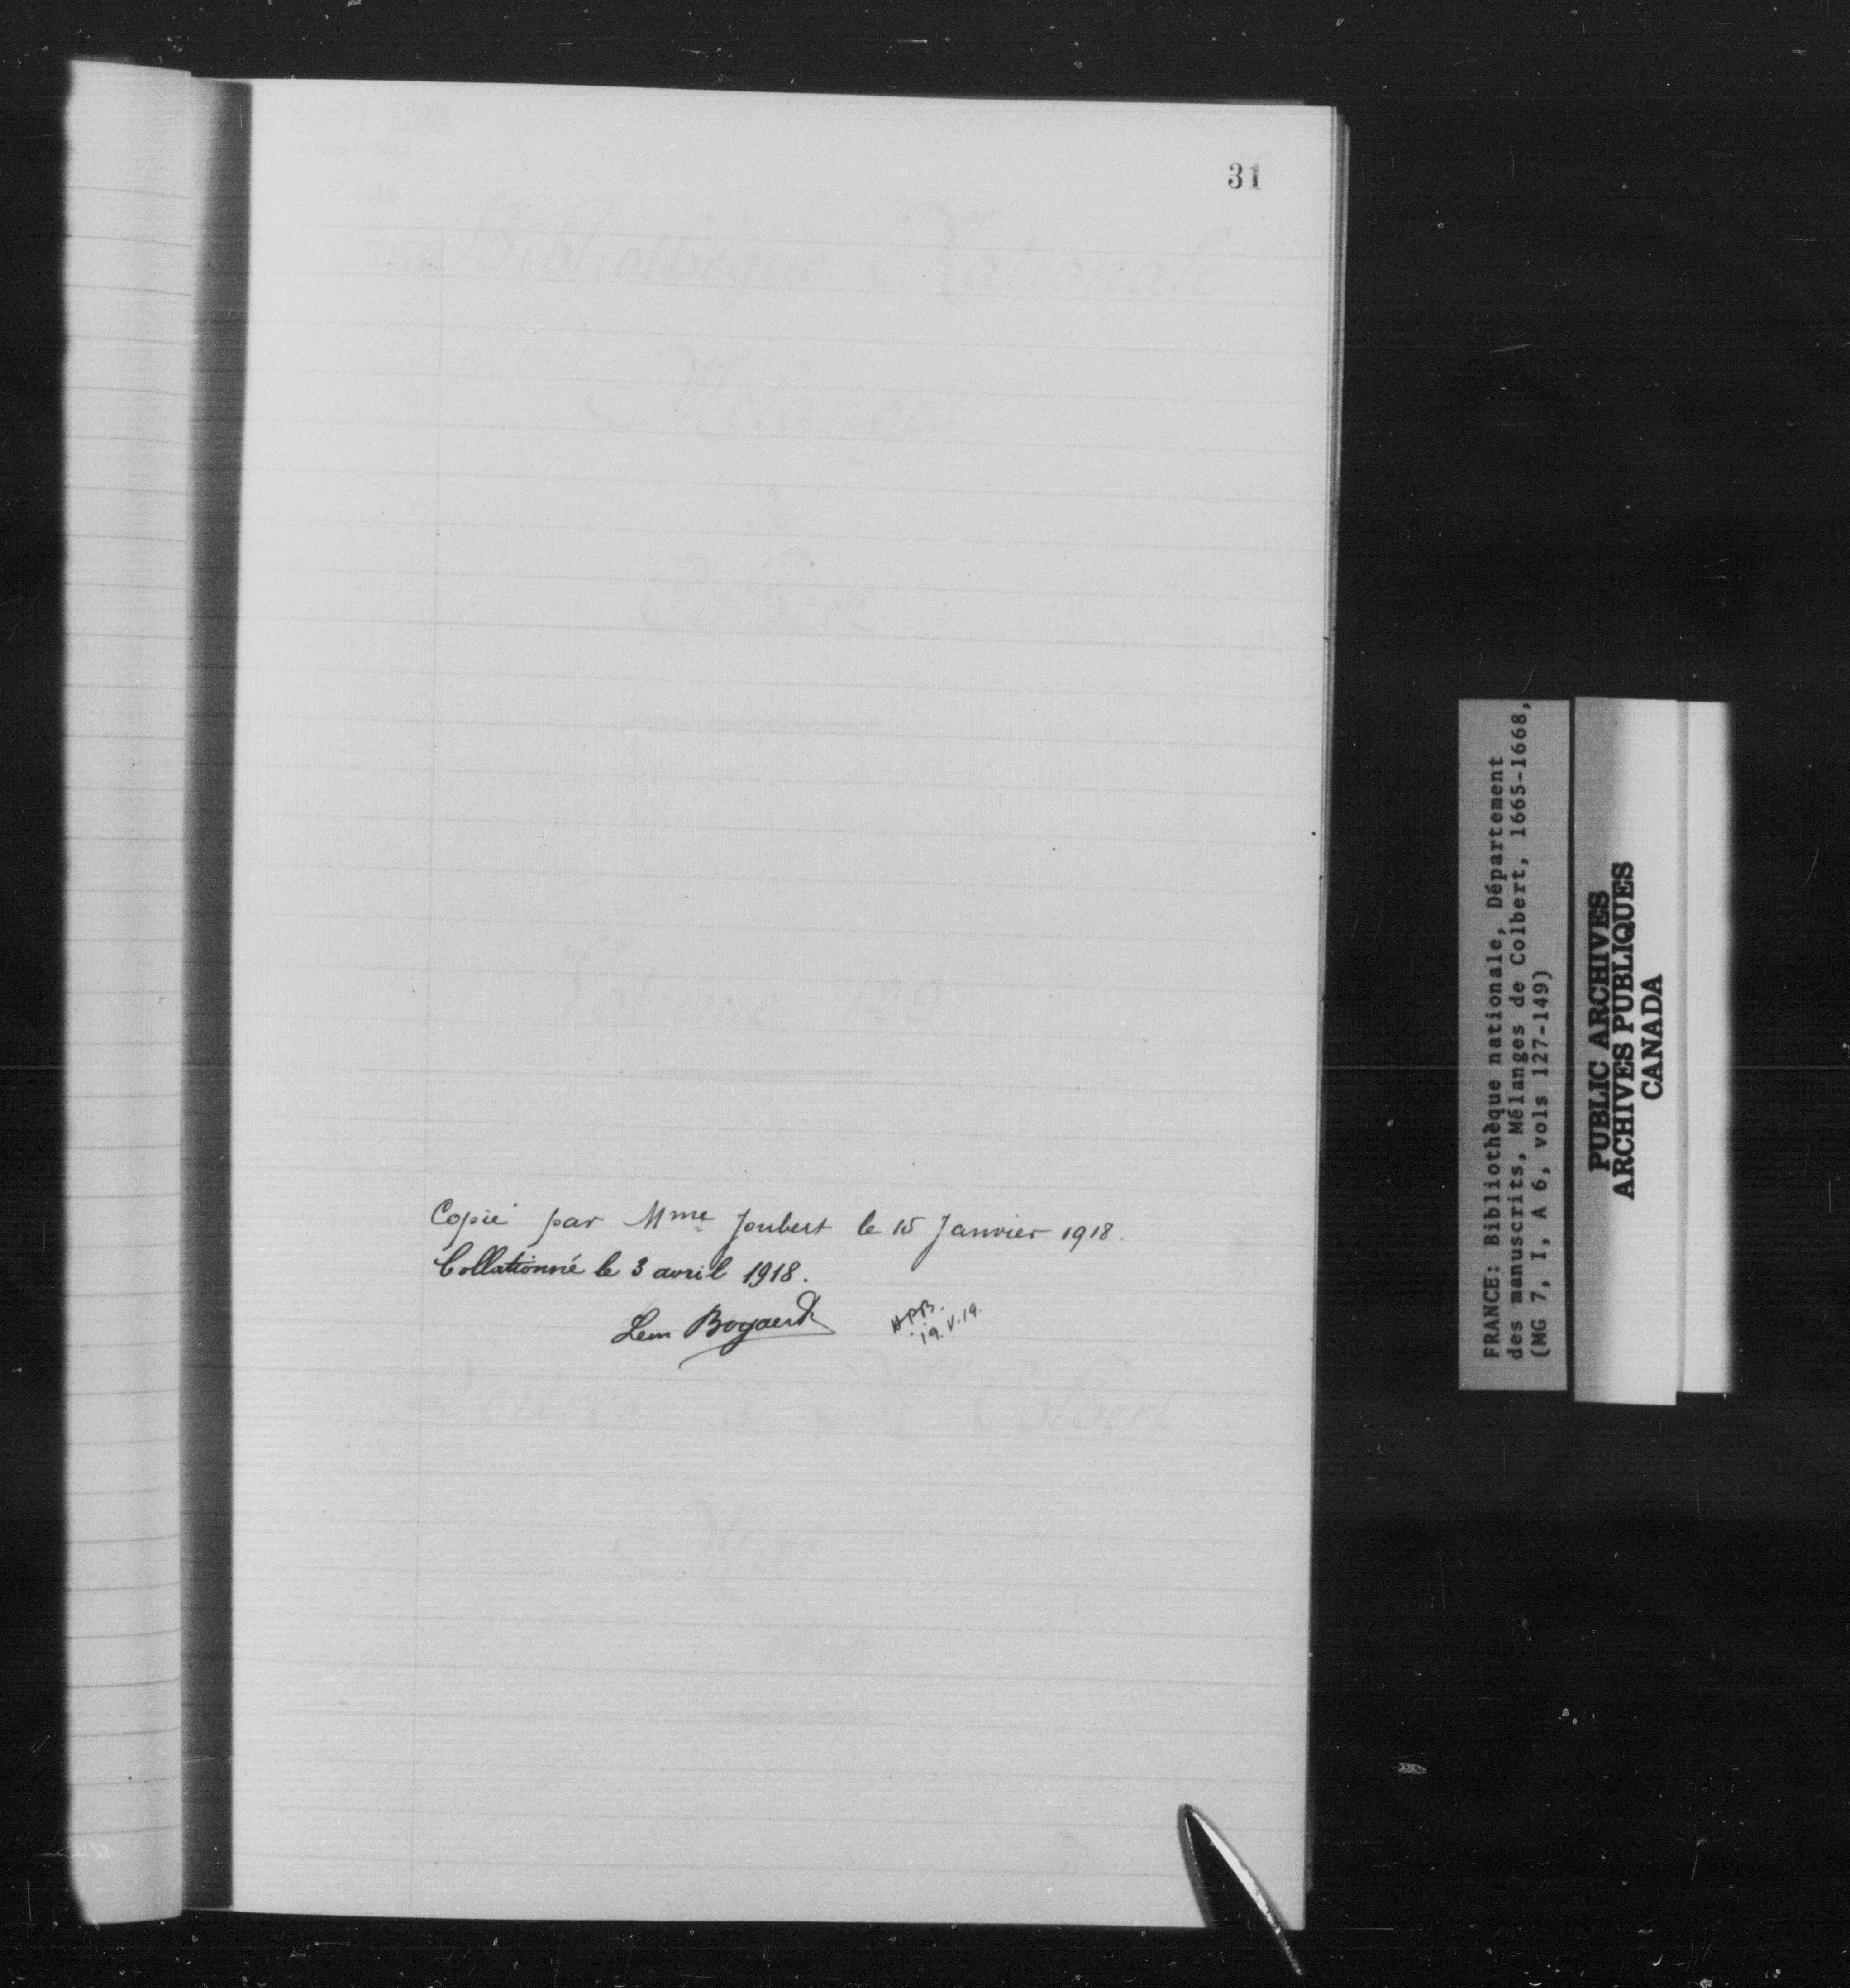 31
Bibliothèque Nationale
Mélanges
Colbert
Volume 129
Copié par Mme Joubert le 15 Janvier 1918.
Collationné le 3 avril 1918.
Leon Bogaerd
H.P.B.
19.V.19.
Lettres à Mr Colbert
Mai
FRANCE: Bibliothèque nationale, Département
des manuscrits, Mélanges de Colbert, 1665-1668,
(MG 7, I, A 6, vols 127-149)
PUBLIC ARCHIVES
ARCHIVES PUBLIQUES
CANADA